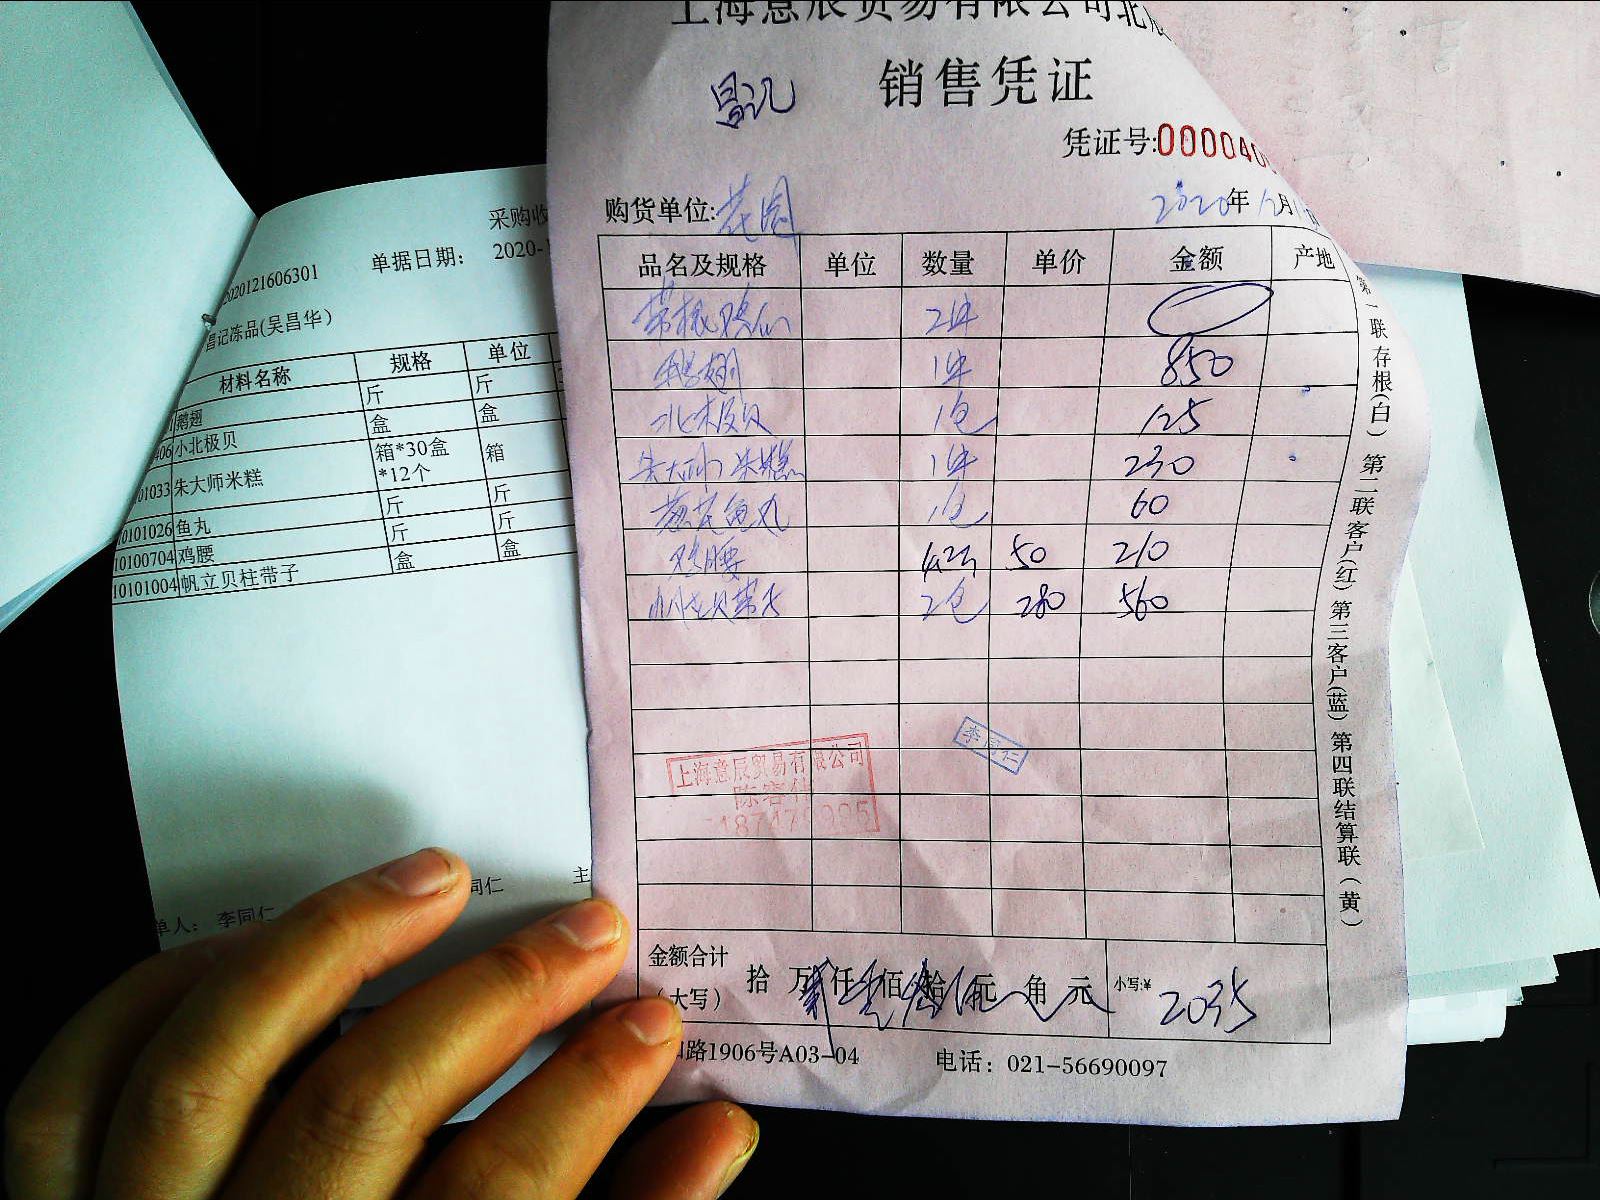 上海意辰贸易有限公司北
昌记
销售凭证
凭证号:000040
购货单位:花园
2020年12月
品名及规格 单位 数量 单价 金额 产地
2件
鹅翅 1件 850
北极贝 1包 125
朱大师米糕 1件 230
葱花鱼丸 1包 60
鸡腰 4.2斤 50 210
帆立贝带子 2包 280 560
李同仁
上海意辰贸易有限公司
金额合计
(大写) 拾 万 仟 佰 拾 元 角 元 小写:¥ 2035
路1906号A03-04 电话：021-56690097
第一联存根(白) 第二联客户(红) 第三客户(蓝) 第四联结算联(黄)
采购收
单据日期： 2020-1
2020121606301
昌记冻品(吴昌华)
材料名称 规格 单位
鹅翅 斤 斤
406 小北极贝 盒 盒
01033 朱大师米糕 箱*30盒*12个 箱
10101026 鱼丸 斤 斤
10100704 鸡腰 斤 斤
10101004 帆立贝柱带子 盒 盒
同仁 主
单人： 李同仁